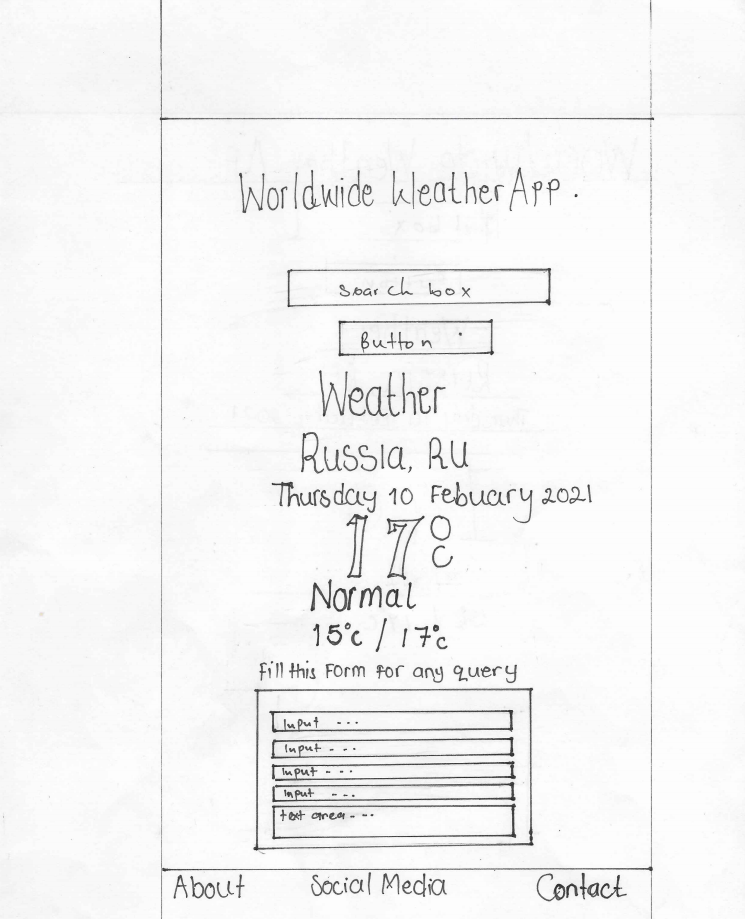 Worldwide Weather App.
Search box
Button
Weather
Russia, RU
Thursday 10 Febuary 2021
17°C
Normal
15°c / 17°c
Fill this Form for any query
Input ---
Input ---
Input ---
Input ---
text area ---
About Social Media Contact